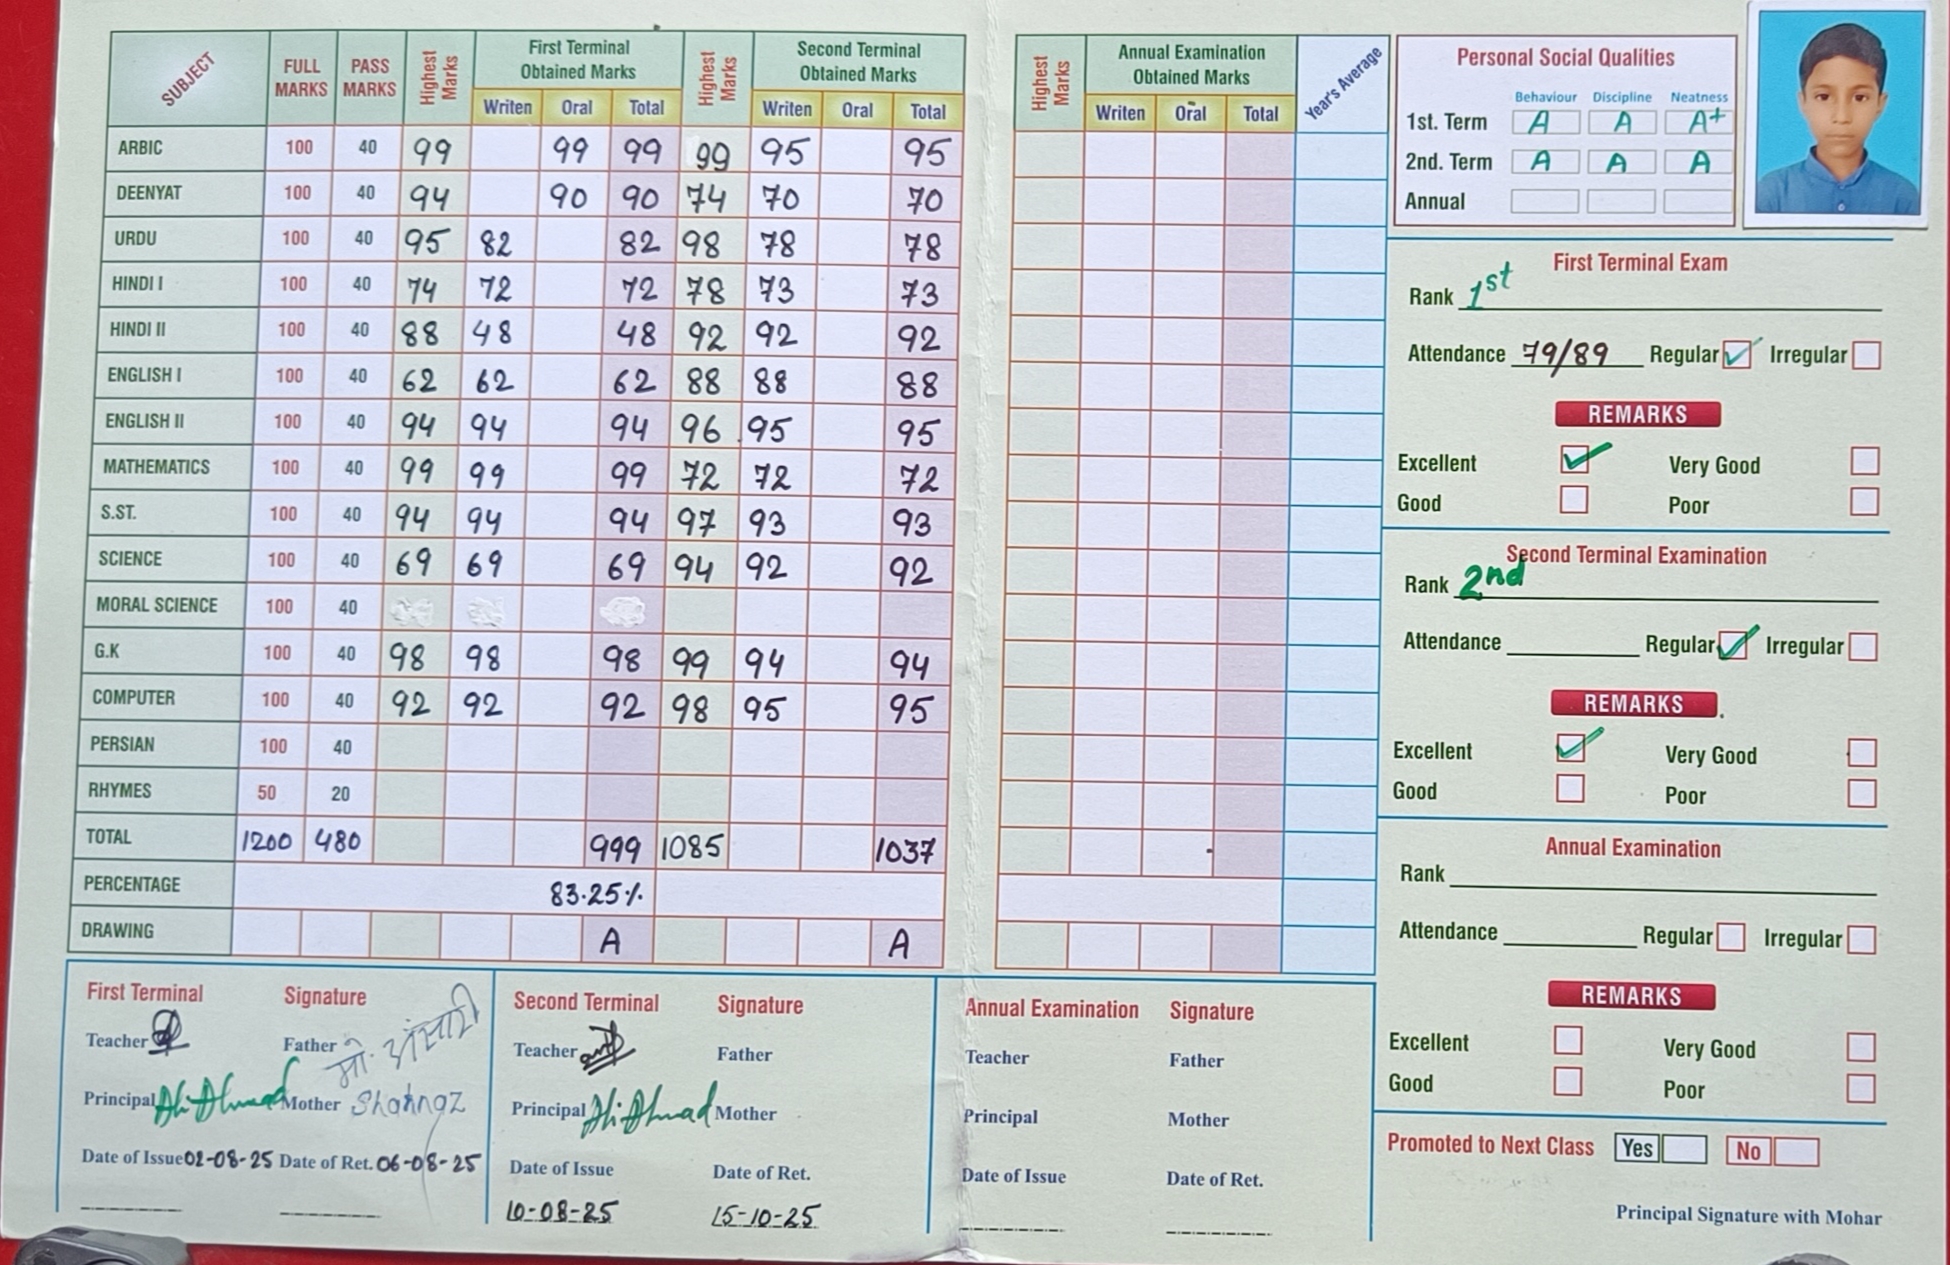 SUBJECT FULL MARKS PASS MARKS Highest Marks First Terminal Obtained Marks Highest Marks Second Terminal Obtained Marks
Writen Oral Total Writen Oral Total
ARBIC 100 40 99 99 99 99 95 95
DEENYAT 100 40 94 90 90 74 70 70
URDU 100 40 95 82 82 98 78 78
HINDI I 100 40 74 72 72 78 73 73
HINDI II 100 40 88 48 48 92 92 92
ENGLISH I 100 40 62 62 62 88 88 88
ENGLISH II 100 40 94 94 94 96 95 95
MATHEMATICS 100 40 99 99 99 72 72 72
S.ST. 100 40 94 94 94 97 93 93
SCIENCE 100 40 69 69 69 94 92 92
MORAL SCIENCE 100 40
G.K 100 40 98 98 98 99 94 94
COMPUTER 100 40 92 92 92 98 95 95
PERSIAN 100 40
RHYMES 50 20
TOTAL 1200 480 999 1085 1037
PERCENTAGE 83.25%
DRAWING A A
First Terminal Signature
Teacher Father मो. अंसारी
Principal Ali Ahmad Mother Shahnaz
Date of Issue 02-08-25 Date of Ret. 06-08-25
Second Terminal Signature
Teacher Father
Principal Ali Ahmad Mother
Date of Issue Date of Ret.
10-08-25 15-10-25
Highest Marks Annual Examination Obtained Marks Year's Average
Writen Oral Total
Annual Examination Signature
Teacher Father
Principal Mother
Date of Issue Date of Ret.
Personal Social Qualities
Behaviour Discipline Neatness
1st. Term A A A+
2nd. Term A A A
Annual
First Terminal Exam
Rank 1st
Attendance 79/89 Regular Irregular
REMARKS
Excellent Very Good
Good Poor
Second Terminal Examination
Rank 2nd
Attendance Regular Irregular
REMARKS
Excellent Very Good
Good Poor
Annual Examination
Rank
Attendance Regular Irregular
REMARKS
Excellent Very Good
Good Poor
Promoted to Next Class Yes No
Principal Signature with Mohar